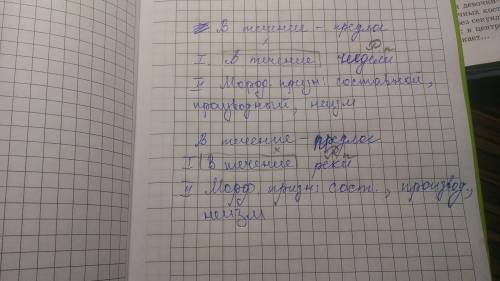 В течение – предлог
Р.п
I В течение недели
II Морф. призн: составной,
производный, неизм
В течение – предлог
Р.п
I В течение реки
II Морф призн: сост., производ.,
неизм